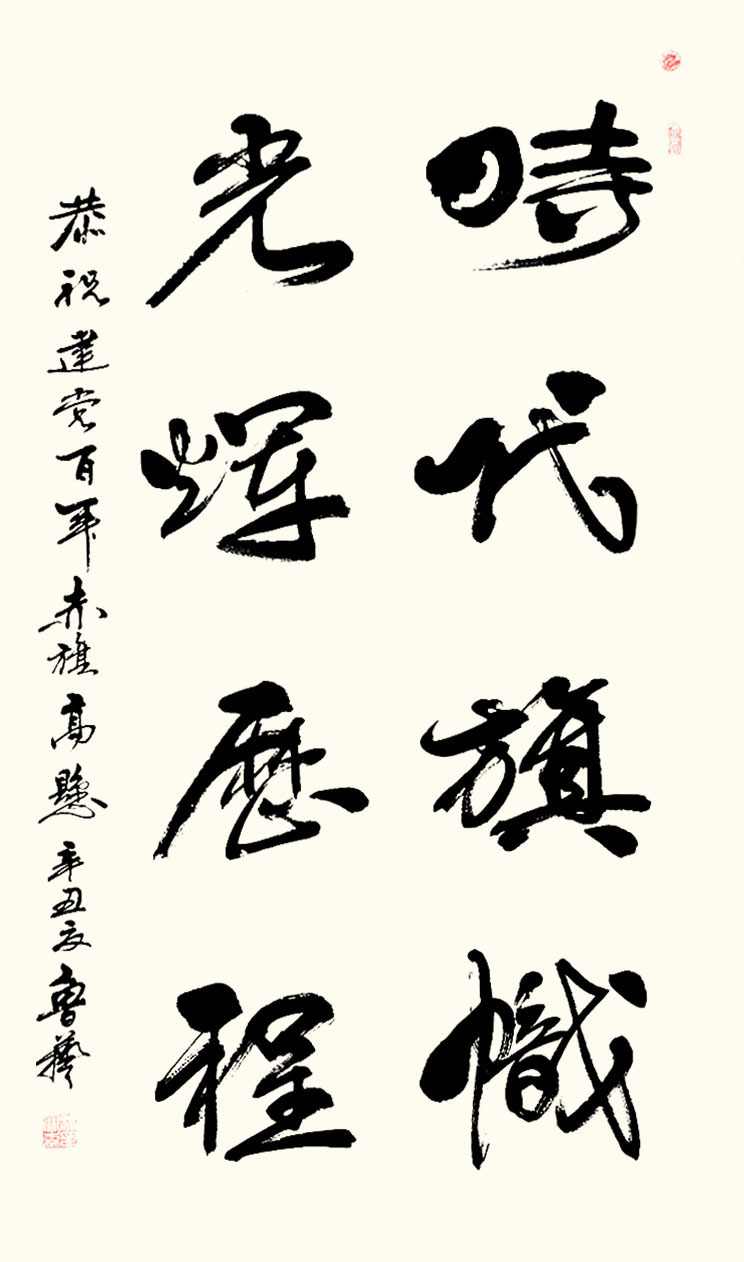 時代旗幟
光輝歷程
恭祝建党百年赤旗高懸辛丑夏魯藝